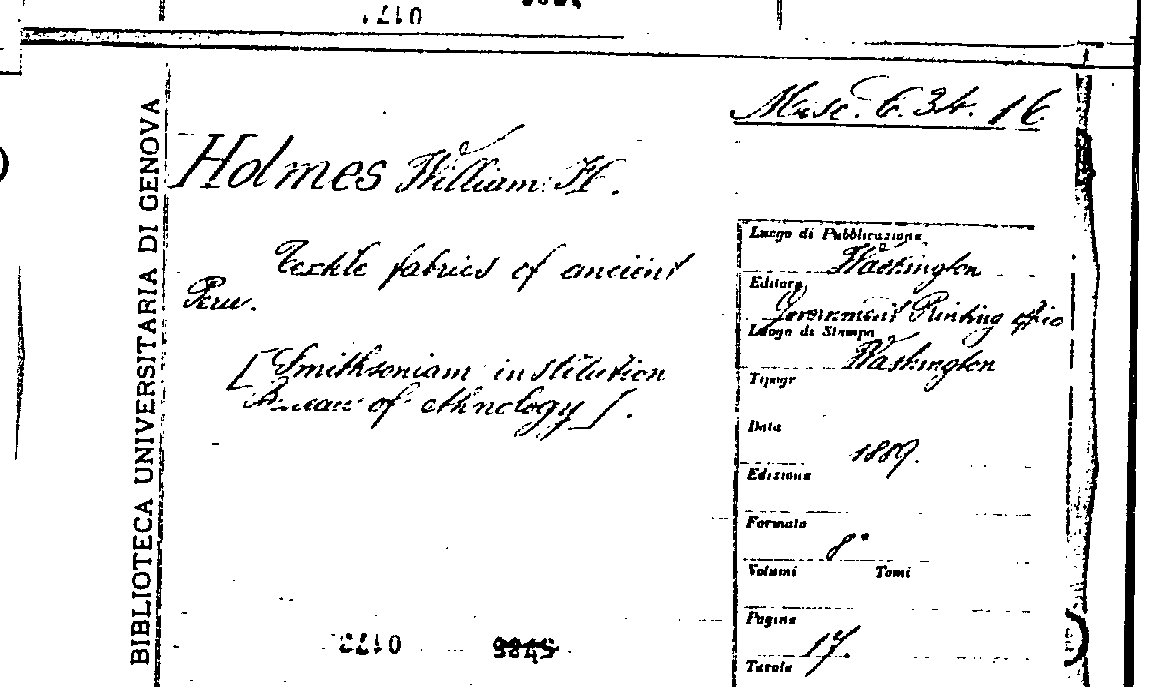 0171
Misc. C. 34. 16
BIBLIOTECA UNIVERSITARIA DI GENOVA
Holmes William H.
Textile fabrics of ancient
Peru.
[Smithsoniam institution
Bureau of ethnology].
Luogo di Pubblicazione
Washington
Editore
Government Printing offic
Luogo di Stampa
Washington
Tipogr
Data
1889.
Edizione
Formato
8°
Volumi Tomi
Pagine
17.
Tavole